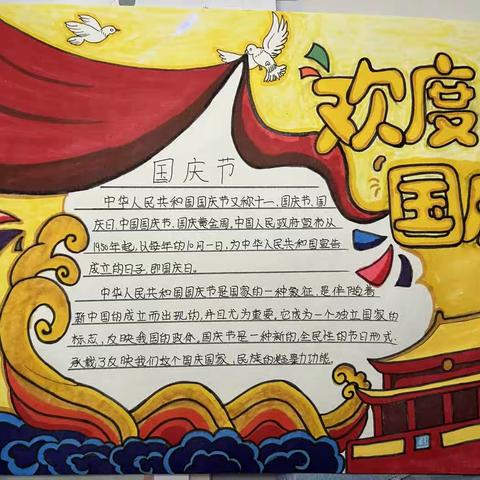 欢度
国庆
国庆节
中华人民共和国国庆节又称十一、国庆节、国
庆日、中国国庆节、国庆黄金周。中国人民政府宣布从
1950年起,以每年的10月一日,为中华人民共和国宣告
成立的日子,即国庆日。
中华人民共和国国庆节是国家的一种象征,是伴随着
新中国的成立而出现的,并且尤为重要,它成为一个独立国家的
标志,反映我国的政体,国庆节是一种新的、全民性的节日形式.
承载了反映我们这个国庆国家、民族的凝聚力功能.